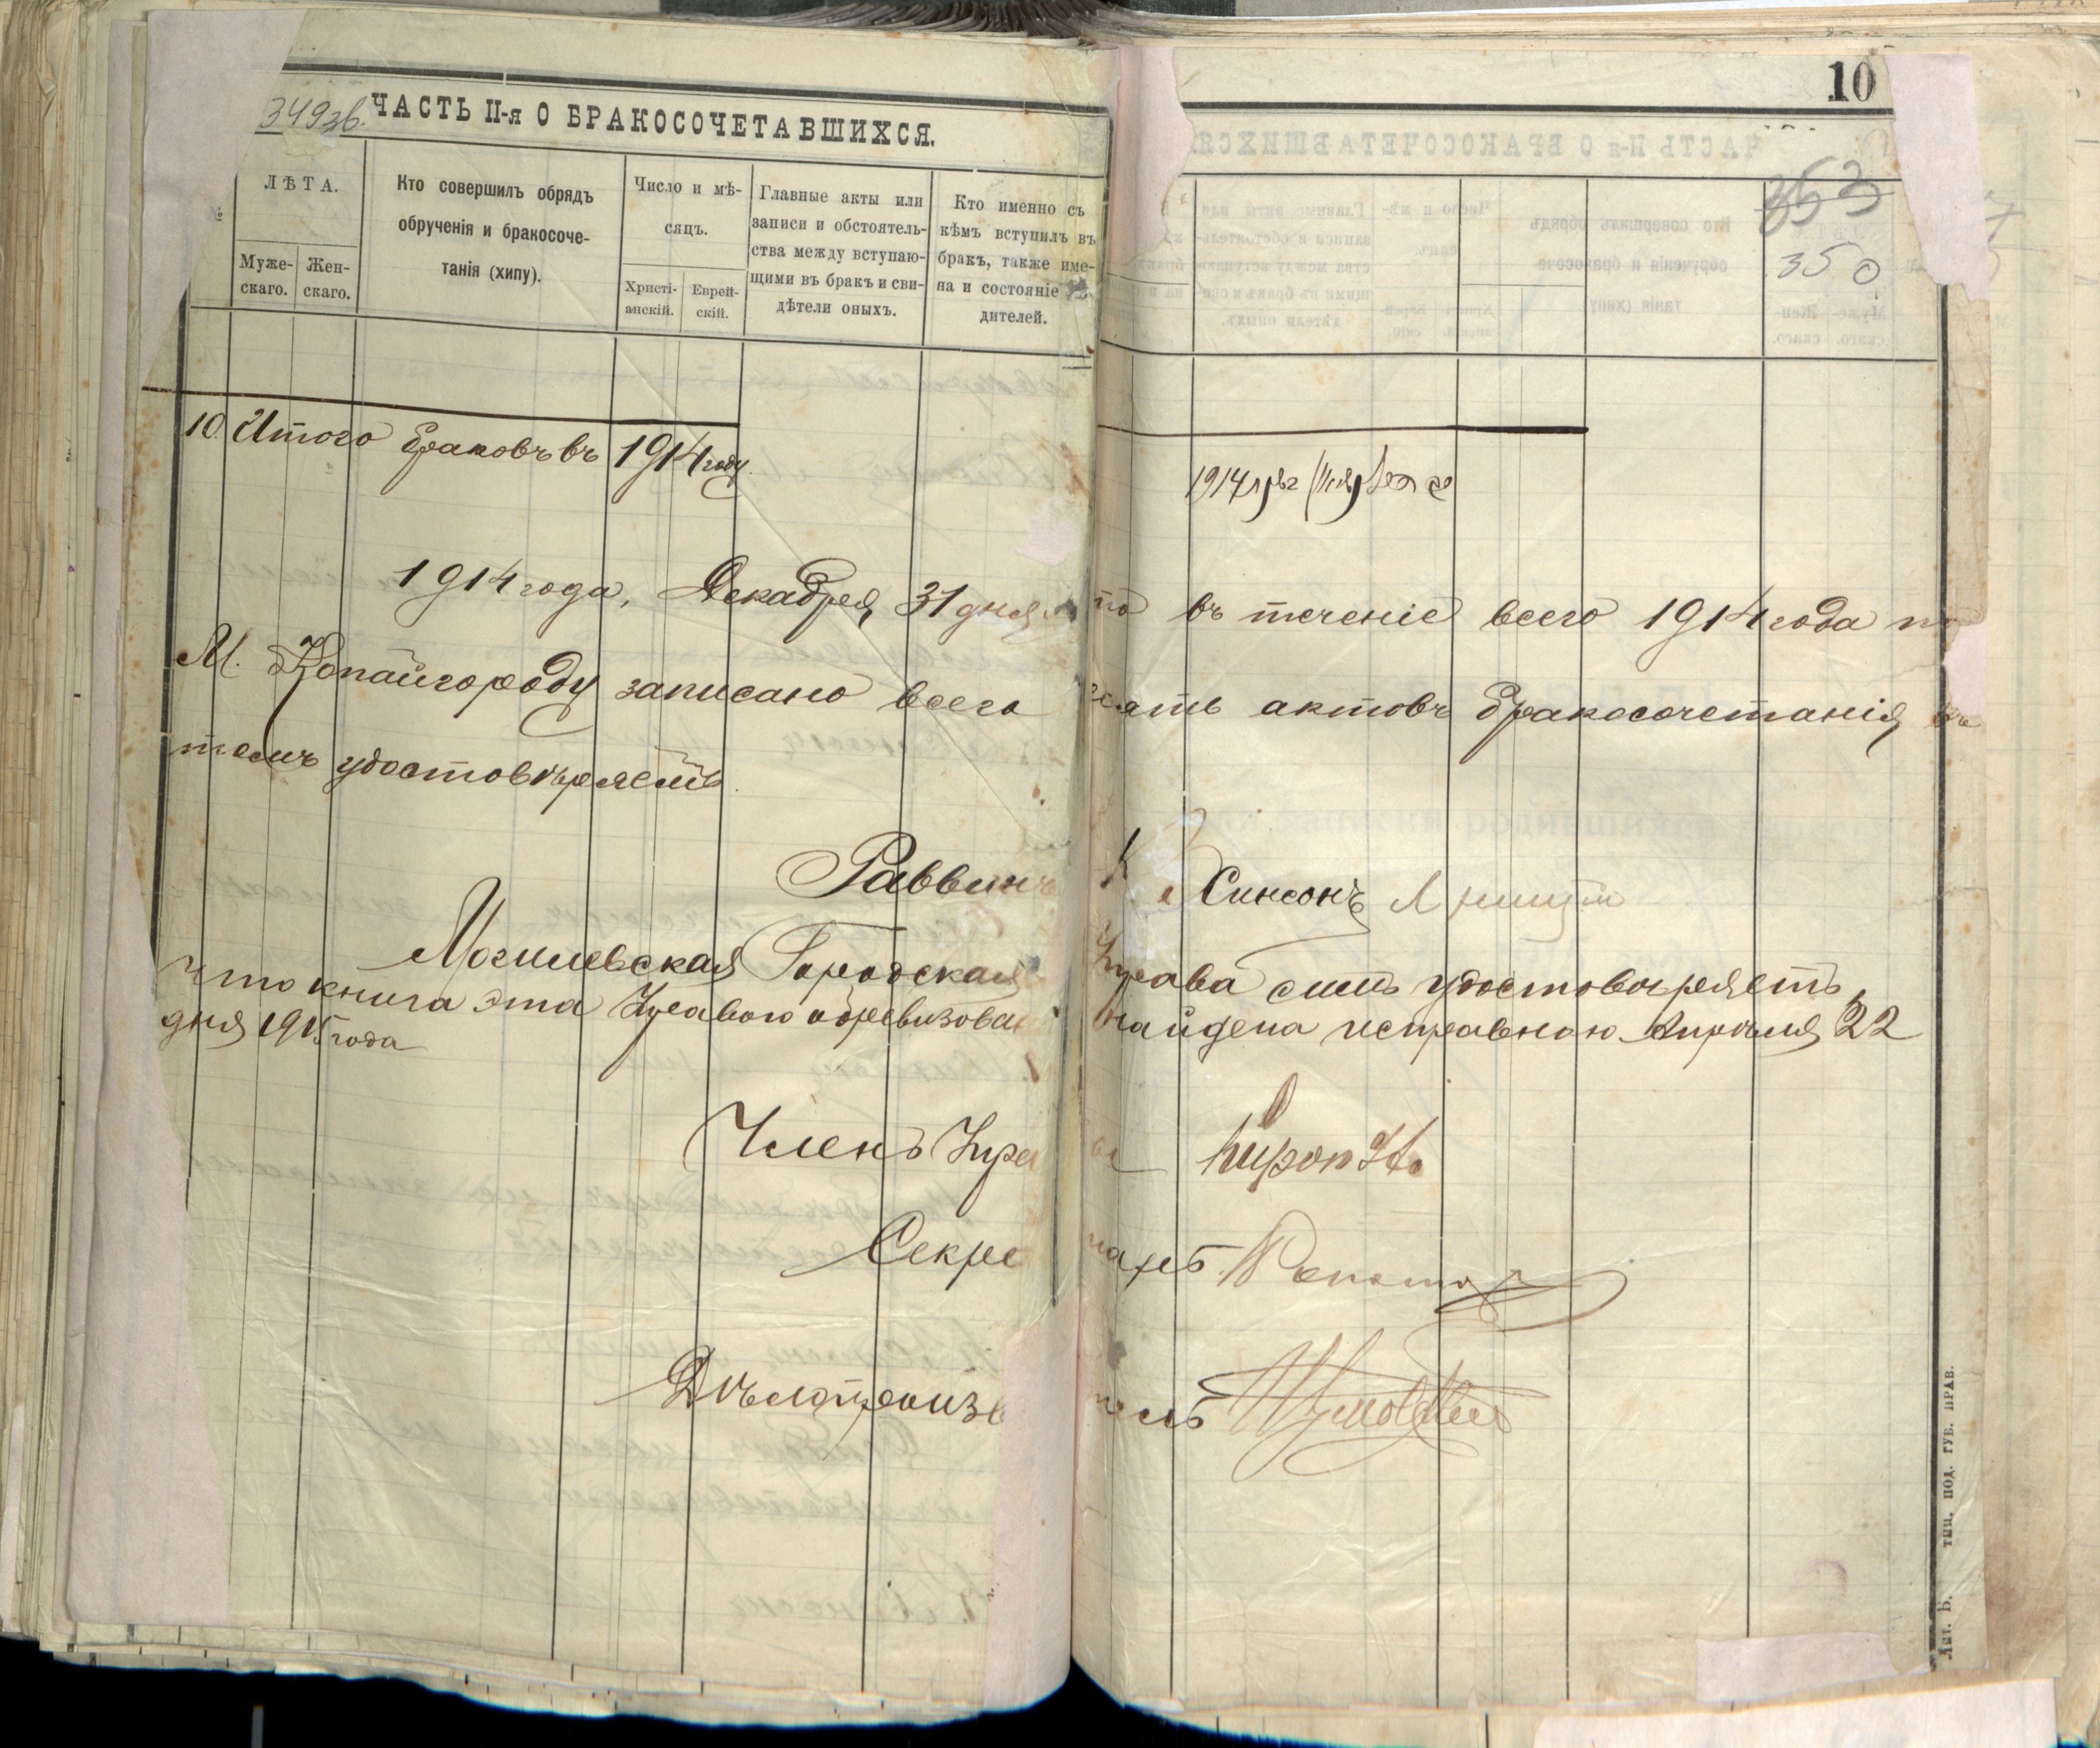 349зв.
ЧАСТЬ II-я О БРАКОСОЧЕТАВШИХСЯ.
ЛѢТА.
Муже-
скаго.
Жен-
скаго.
Кто совершилъ обрядъ
обрученія и бракосоче-
танія (хипу).
Число и мѣ-
сяцъ.
Христі-
анскій.
Еврей-
скій.
Главные акты или
записи и обстоятель-
ства между вступаю-
щими въ бракъ и сви-
дѣтели оныхъ.
Кто именно съ
кѣмъ вступилъ въ
бракъ, также име-
на и состояніе
дителей.
10
353
350
10 Итого браковъ въ 1914 году.
1914
1914 года, Декабря 31 дня что въ теченіе всего 1914 года по
М. Копайгороду записано всего десять актовъ бракосочетанія въ
томъ удостовѣряетъ.
Раввинъ
Могилевская Городская Управа симъ удостовѣряетъ,
что книга эта Управою обревизована найдена исправною. Апрѣля 22
дня 1915 года
Членъ Упра вы
Секре тарь
Дѣлопроизв тель
Лит. Б. тип. под. губ. прав.